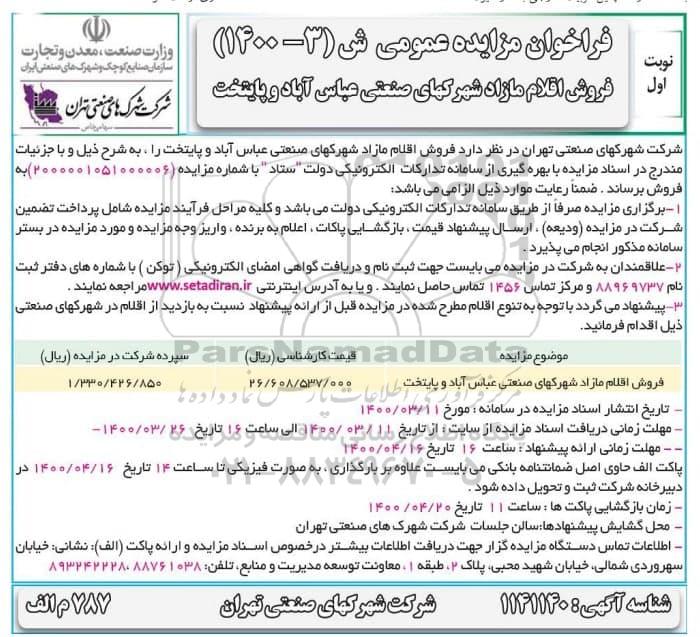 فراخوان مزایده عمومی ش (۳- ۱۴۰۰)
فروش اقلام مازاد شهرکهای صنعتی عباس آباد و پایتخت
نوبت
اول
وزارت صنعت، معدن و تجارت
سازمان صنایع کوچک و شهرک‌های صنعتی ایران
شرکت شهرک های صنعتی تهران
شرکت شهرکهای صنعتی تهران در نظر دارد فروش اقلام مازاد شهرکهای صنعتی عباس آباد و پایتخت را ، به شرح ذیل و با جزئیات
مندرج در اسناد مزایده با بهره گیری از سامانه تدارکات الکترونیکی دولت "ستاد" با شماره مزایده (۲۰۰۰۰۰۱۰۵۱۰۰۰۰۰۶) به
فروش برساند . ضمناً رعایت موارد ذیل الزامی می باشد:
۱-برگزاری مزایده صرفاً از طریق سامانه تدارکات الکترونیکی دولت می باشد و کلیه مراحل فرآیند مزایده شامل پرداخت تضمین
شرکت در مزایده (ودیعه) ، ارسال پیشنهاد قیمت ، بازگشایی پاکات ، اعلام به برنده ، واریز وجه مزایده و مورد مزایده در بستر
سامانه مذکور انجام می پذیرد.
۲-علاقمندان به شرکت در مزایده می بایست جهت ثبت نام و دریافت گواهی امضای الکترونیکی ( توکن ) با شماره های دفتر ثبت
نام ۸۸۹۶۹۷۳۷ و مرکز تماس ۱۴۵۶ تماس حاصل نمایند . و یا به آدرس اینترنتی www.setadiran.ir مراجعه نمایند .
۳-پیشنهاد می گردد با توجه به تنوع اقلام مطرح شده در مزایده قبل از ارائه پیشنهاد نسبت به بازدید از اقلام در شهرکهای صنعتی
ذیل اقدام فرمائید.
موضوع مزایده قیمت کارشناسی (ریال) سپرده شرکت در مزایده (ریال)
فروش اقلام مازاد شهرکهای صنعتی عباس آباد و پایتخت ۲۶/۶۰۸/۵۳۷/۰۰۰ ۱/۳۳۰/۴۲۶/۸۵۰
ParsNamadData
- تاریخ انتشار اسناد مزایده در سامانه : مورخ ۱۴۰۰/۰۳/۱۱
- مهلت زمانی دریافت اسناد مزایده از سایت : از تاریخ ۱۱ /۰۳ /۱۴۰۰ الی ساعت ۱۶ تاریخ ۲۶ /۰۳ /۱۴۰۰-
- - مهلت زمانی ارائه پیشنهاد : ساعت ۱۶ تاریخ ۱۴۰۰/۰۴/۱۶
پاکت الف حاوی اصل ضمانتنامه بانکی می بایست علاوه بر بارگذاری ، به صورت فیزیکی تا ساعت ۱۴ تاریخ ۱۴۰۰/۰۴/۱۶ در
دبیرخانه شرکت ثبت و تحویل داده شود .
- زمان بازگشایی پاکت ها : ساعت ۱۱ تاریخ ۱۴۰۰/۰۴/۲۰
- محل گشایش پیشنهادها:سالن جلسات شرکت شهرک های صنعتی تهران
- اطلاعات تماس دستگاه مزایده گزار جهت دریافت اطلاعات بیشتر درخصوص اسناد مزایده و ارائه پاکت (الف): نشانی: خیابان
سهروردی شمالی، خیابان شهید محبی، پلاک ۲، طبقه ۱، معاونت توسعه مدیریت و منابع، تلفن: ۸۸۷۶۱۰۳۸ ،۸۹۳۲۴۲۲۲۸
شناسه آگهی: ۱۱۴۱۱۴۰ شرکت شهرکهای صنعتی تهران ۷۸۷ م الف